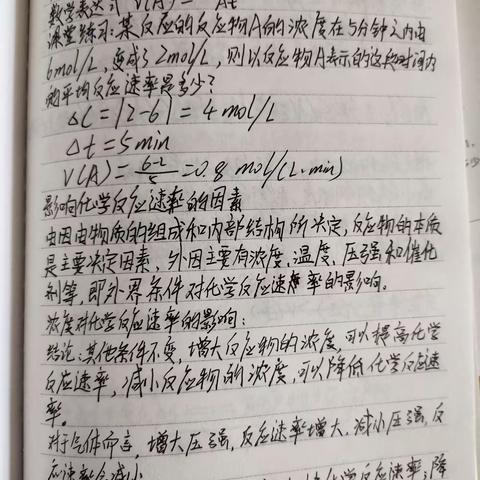 数学表达式 V(A) = Δt
课堂练习:某反应的反应物A的浓度在5分钟之内由
6mol/L 变成了2mol/L,则以反应物A表示的这段时间内
的平均反应速率是多少?
ΔC = |2-6| = 4 mol/L
Δt = 5min
V(A) = 6-2/5 = 0.8 mol/(L·min)
影响化学反应速率的因素
由因由物质的组成和内部结构所决定,反应物的本质
是主要决定因素,外因主要有浓度、温度、压强和催化
剂等,即外界条件对化学反应速率的影响。
浓度对化学反应速率的影响:
结论:其他条件不变,增大反应物的浓度,可以提高化学
反应速率,减小反应物的浓度,可以降低化学反应速
率。
对于气体而言,增大压强,反应速率增大,减小压强,反
应速率会减小
化学反应速率;降